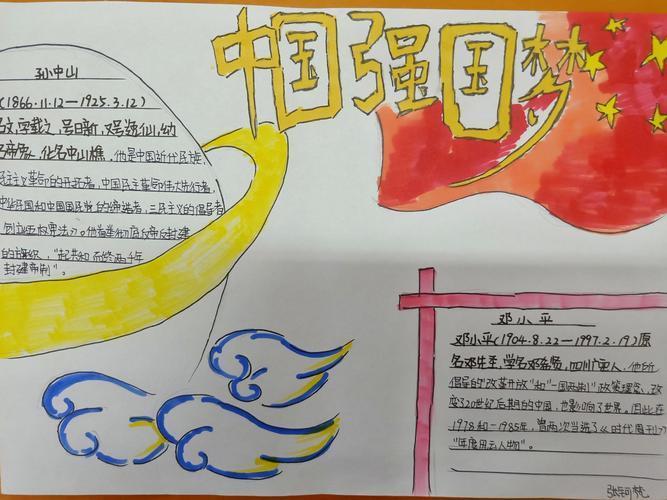 中国强国梦
孙中山
(1866.11.12—1925.3.12)
名文,字载之,号日新,又号逸仙,幼
名帝象,化名中山樵,他是中国近代民族
民主主义革命的开拓者,中国民主革命伟大先行者,
中华民国和中国国民党的缔造者,三民主义的倡导者
创立五权宪法》。他首举彻底反帝反封建
的旗帜,"起共和而终两千年
封建帝制"。
邓小平
邓小平(1904.8.22—1997.2.19)原
名邓先圣,学名邓希贤,四川广安人,他所
倡导的"改革开放"和"一国两制"政策理念,改
变320世纪后期的中国,也影响了世界。因此在
1978和1985年,曾两次当选了《时代周刊》
"年度风云人物"。